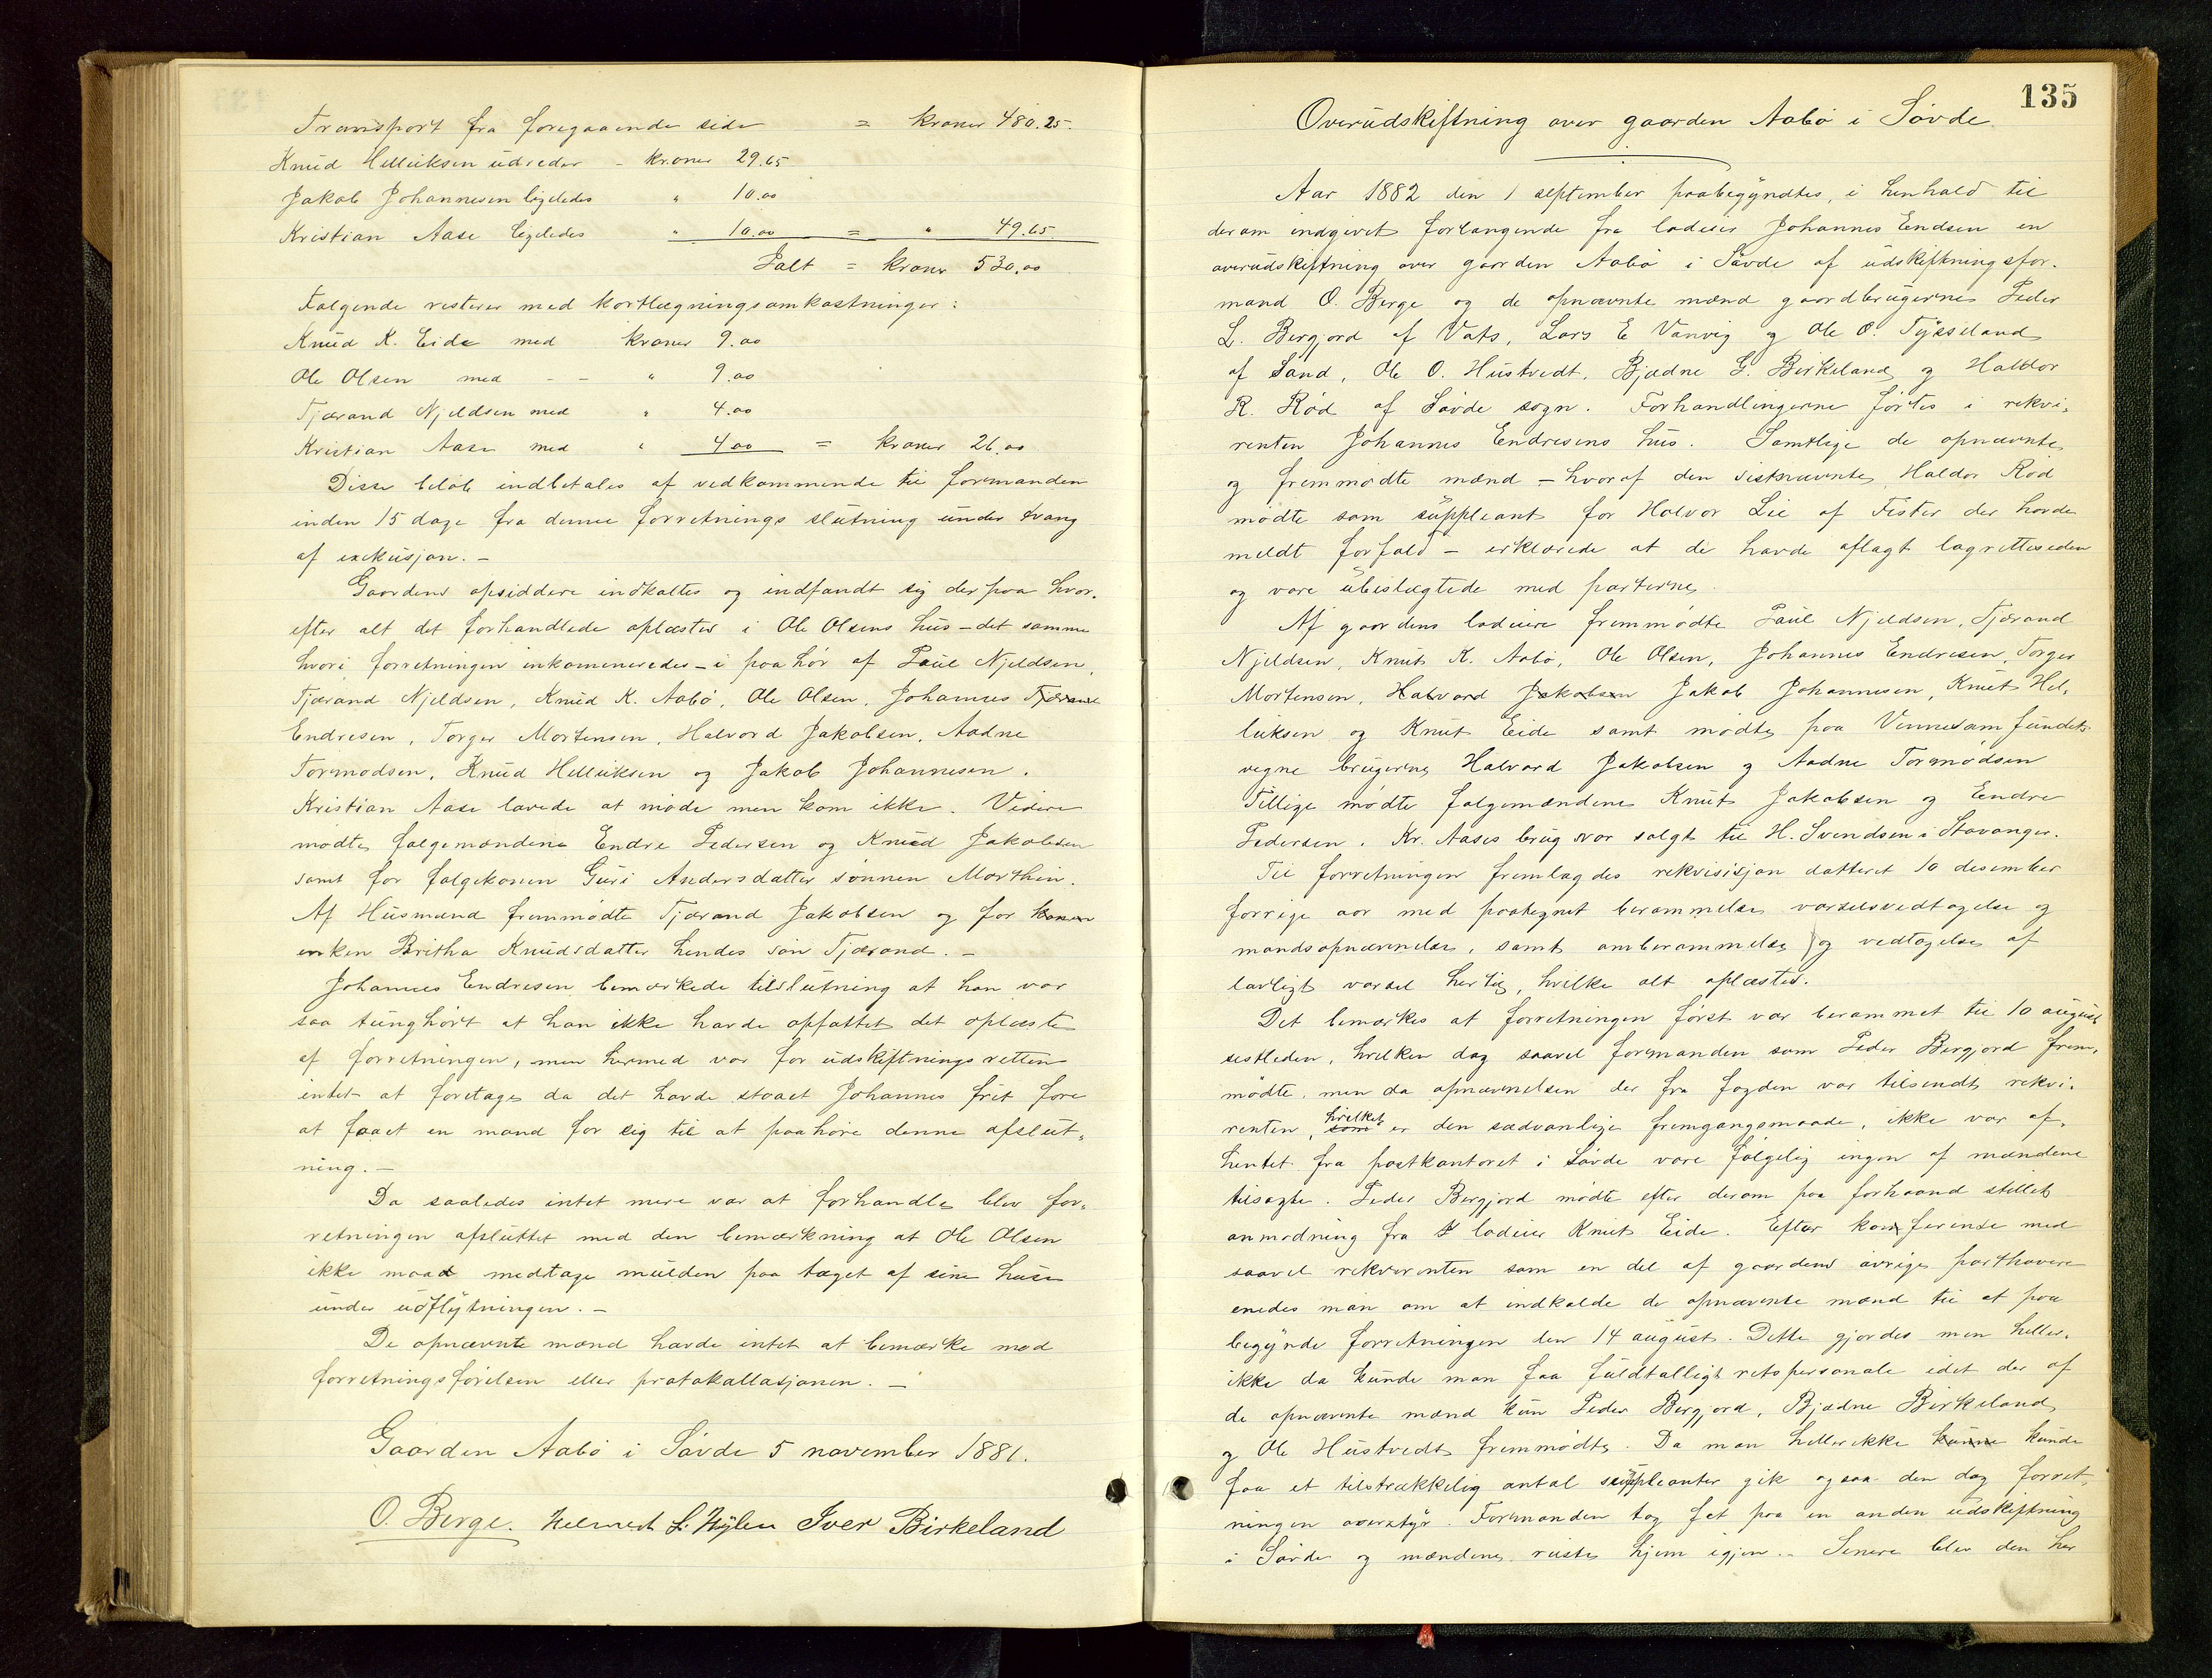 Transport fra foregaaende side = kroner 480.25.
Knud Helliksen udreder - kroner 29.65
Jakob Johannesen ligeledes " 10.00
Kristian Aase ligeledes " 10.00 = " 49.65.
Ialt = kroner 530.00
Følgende resterer med kortlægningsomkostninger:
Knud K. Eide med kroner 9.00
Ole Olsen med - - " 9.00
Tjærand Njeldsen med " 4.00
Kristian Aase med " 4.00 = kroner 26.00
Disse beløb indbetales af vedkommende til formanden
inden 15 dage fra denne forretnings slutning under tvang
af exekusjon. -
Gaardens opsiddere indkaltes og indfandt sig derpaa hvor-
efter alt det forhandlede oplæstes i Ole Olsens hus - det samme
hvori forretningen inkamineredes - i paahør af Paul Njeldsen,
Tjærand Njeldsen, Knud K. Aabø, Ole Olsen, Johannes Tjærand
Endresen, Torger Mortensen, Halvord Jakobsen, Aadne
Tormodsen, Knud Helliksen og Jakob Johannesen.
Kristian Aase lovede at møde men kom ikke. Videre
mødte følgemændene Endre Pedersen og Knud Jakobsen
samt for følgekonen Guri Andersdatter sønnen Morthin.
Af Husmænd fremmødte Tjærand Jakobsen og for konen
enken Britha Knudsdatter hendes søn Tjærand. -
Johannes Endresen bemærkede tilslutning at han var
saa tunghørt at han ikke havde opfattet det oplæste
af forretningen, men hermed var for udskiftningsretten
intet at foretage da det havde staaet Johannes frit fore
at faaet en mand for sig til at paahøre denne afslut-
ning. -
Da saaledes intet mere var at forhandle blev for-
retningen afsluttet med den bemærkning at Ole Olsen
ikke maa medtage mulden paa taget af sine huse
under udflytningen. -
De opnævnte mænd havde intet at bemærke mod
forretningsførelsen eller protokollasjonen. -
Gaarden Aabø i Søvde 5 november 1881.
O. Berge. Helmech L. Hylen Iver Birkeland
135
Overudskiftning over gaarden Aabø i Søvde
Aar 1882 den 1 september paabegyndtes, i henhold til
derom indgivet forlangende fra lodeier Johannes Endsen en
overudskiftning over gaarden Aabø i Søvde af udskiftningsfor-
mand O. Berge og de opnævnte mænd gaardbrugerne Peder
L. Bergjord af Vats, Lars E Vanvig og Ole O. Tysseland
af Sand, Ole O. Hustvedt, Bjadne G. Birkeland og Haldor
R. Rød af Søvde sogn. Forhandlingerne førtes i rekvi-
renten Johannes Endresens hus. Samtlige de opnævnte
og fremmødte mænd - hvoraf den sistnævnte Haldor Rød
mødte som suppleant for Halvor Lie af Fister der havde
meldt forfald - erklærede at de havde aflagt lagrettesseden
og vare ubeslægtede med parterne.
Af gaardens lodeiere fremmødte Paul Njeldsen, Tjærand
Njeldsen, Knut K. Aabø, Ole Olsen, Johannes Endresen, Torger
Mortensen, Halvord Jakobsen Jakob Johannesen, Knut Hel-
liksen og Knut Eide samt mødte paa Vennesamfundets
vegne brugerne Halvard Jakobsen og Aadne Tormodsen
Tillige mødte følgemændene Knut Jakobsen og Endre
Pedersen. Kr. Aases brug var solgt til H. Svendsen i Stavanger.
Til forretningen fremlagdes rekvisisjon datteret 10 desember
forrige aar med paategnet berammelse varselsvedtagelse og
mandsopnævnelse, samt omberammelse og vedtagelse af
lovligt varsel hertil, hvilke alt oplæstes.
Det bemærkes at forretningen først var berammet til 10 august
sistleden, hvilken dag saavel formanden som Peder Bergjord frem-
mødte, men da opnævnelsen der fra fogden var tilsendt rekvi-
renten, som hvilket er den sædvanlige fremgangsmaade, ikke var af-
hentet fra postkontoret i Søvde vare følgelig ingen af mændene
tilsagte. Peder Bergjord mødte efter derom paa forhaand stillet
anmodning fra lodeier Knut Eide. Efter konferense med
saavel rekvirenten som en del af gaardens øvrige parthavere
enedes man om at indkalde de opnævnte mænd til at paa
begynde forretningen den 14 august. Dette gjordes men heller
ikke da kunde man faa fuldtalligt retspersonale idet der af
de opnævnte mænd kun Peder Bergjord, Bjadne Birkeland
og Ole Hustvedt fremmødte. Da man heller ikke kunne kunde
faa et tilstrækkelig antal suppleanter gik ogsaa den dag forret-
ningen overstyr. Formanden tog fat paa en anden udskiftning
i Søvde og mændene reiste hjem igjen. - Senere blev den her